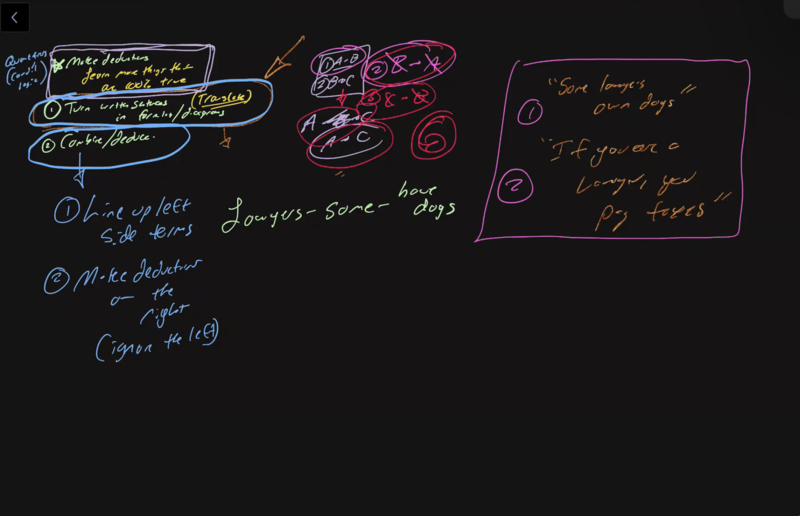 Quantifiers
(Cond'l
logic)
Make deductions
learn more things that
are 100% true
① Turn written sentences (Translate)
in formulas/diagrams
② Combine/deduce
① Line up left
side terms
② Make deductions
on the
right
(ignore the left)
① A → B
② B → C
A → C
② B → A
Lawyers - some - have
dogs
①
"Some lawyers
own dogs"
②
"If you are a
Lawyer, you
pay taxes"